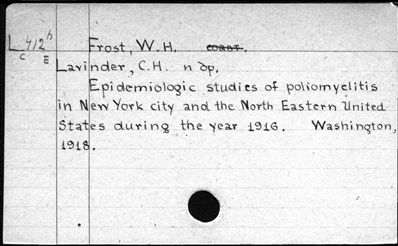 L 412 h Frost, W.H. coast.
C E
Lavinder, C.H. n dp.
Epidemiologic studies of poliomyelitis
in New York city and the North Eastern United
States during the year 1916. Washington,
1918.